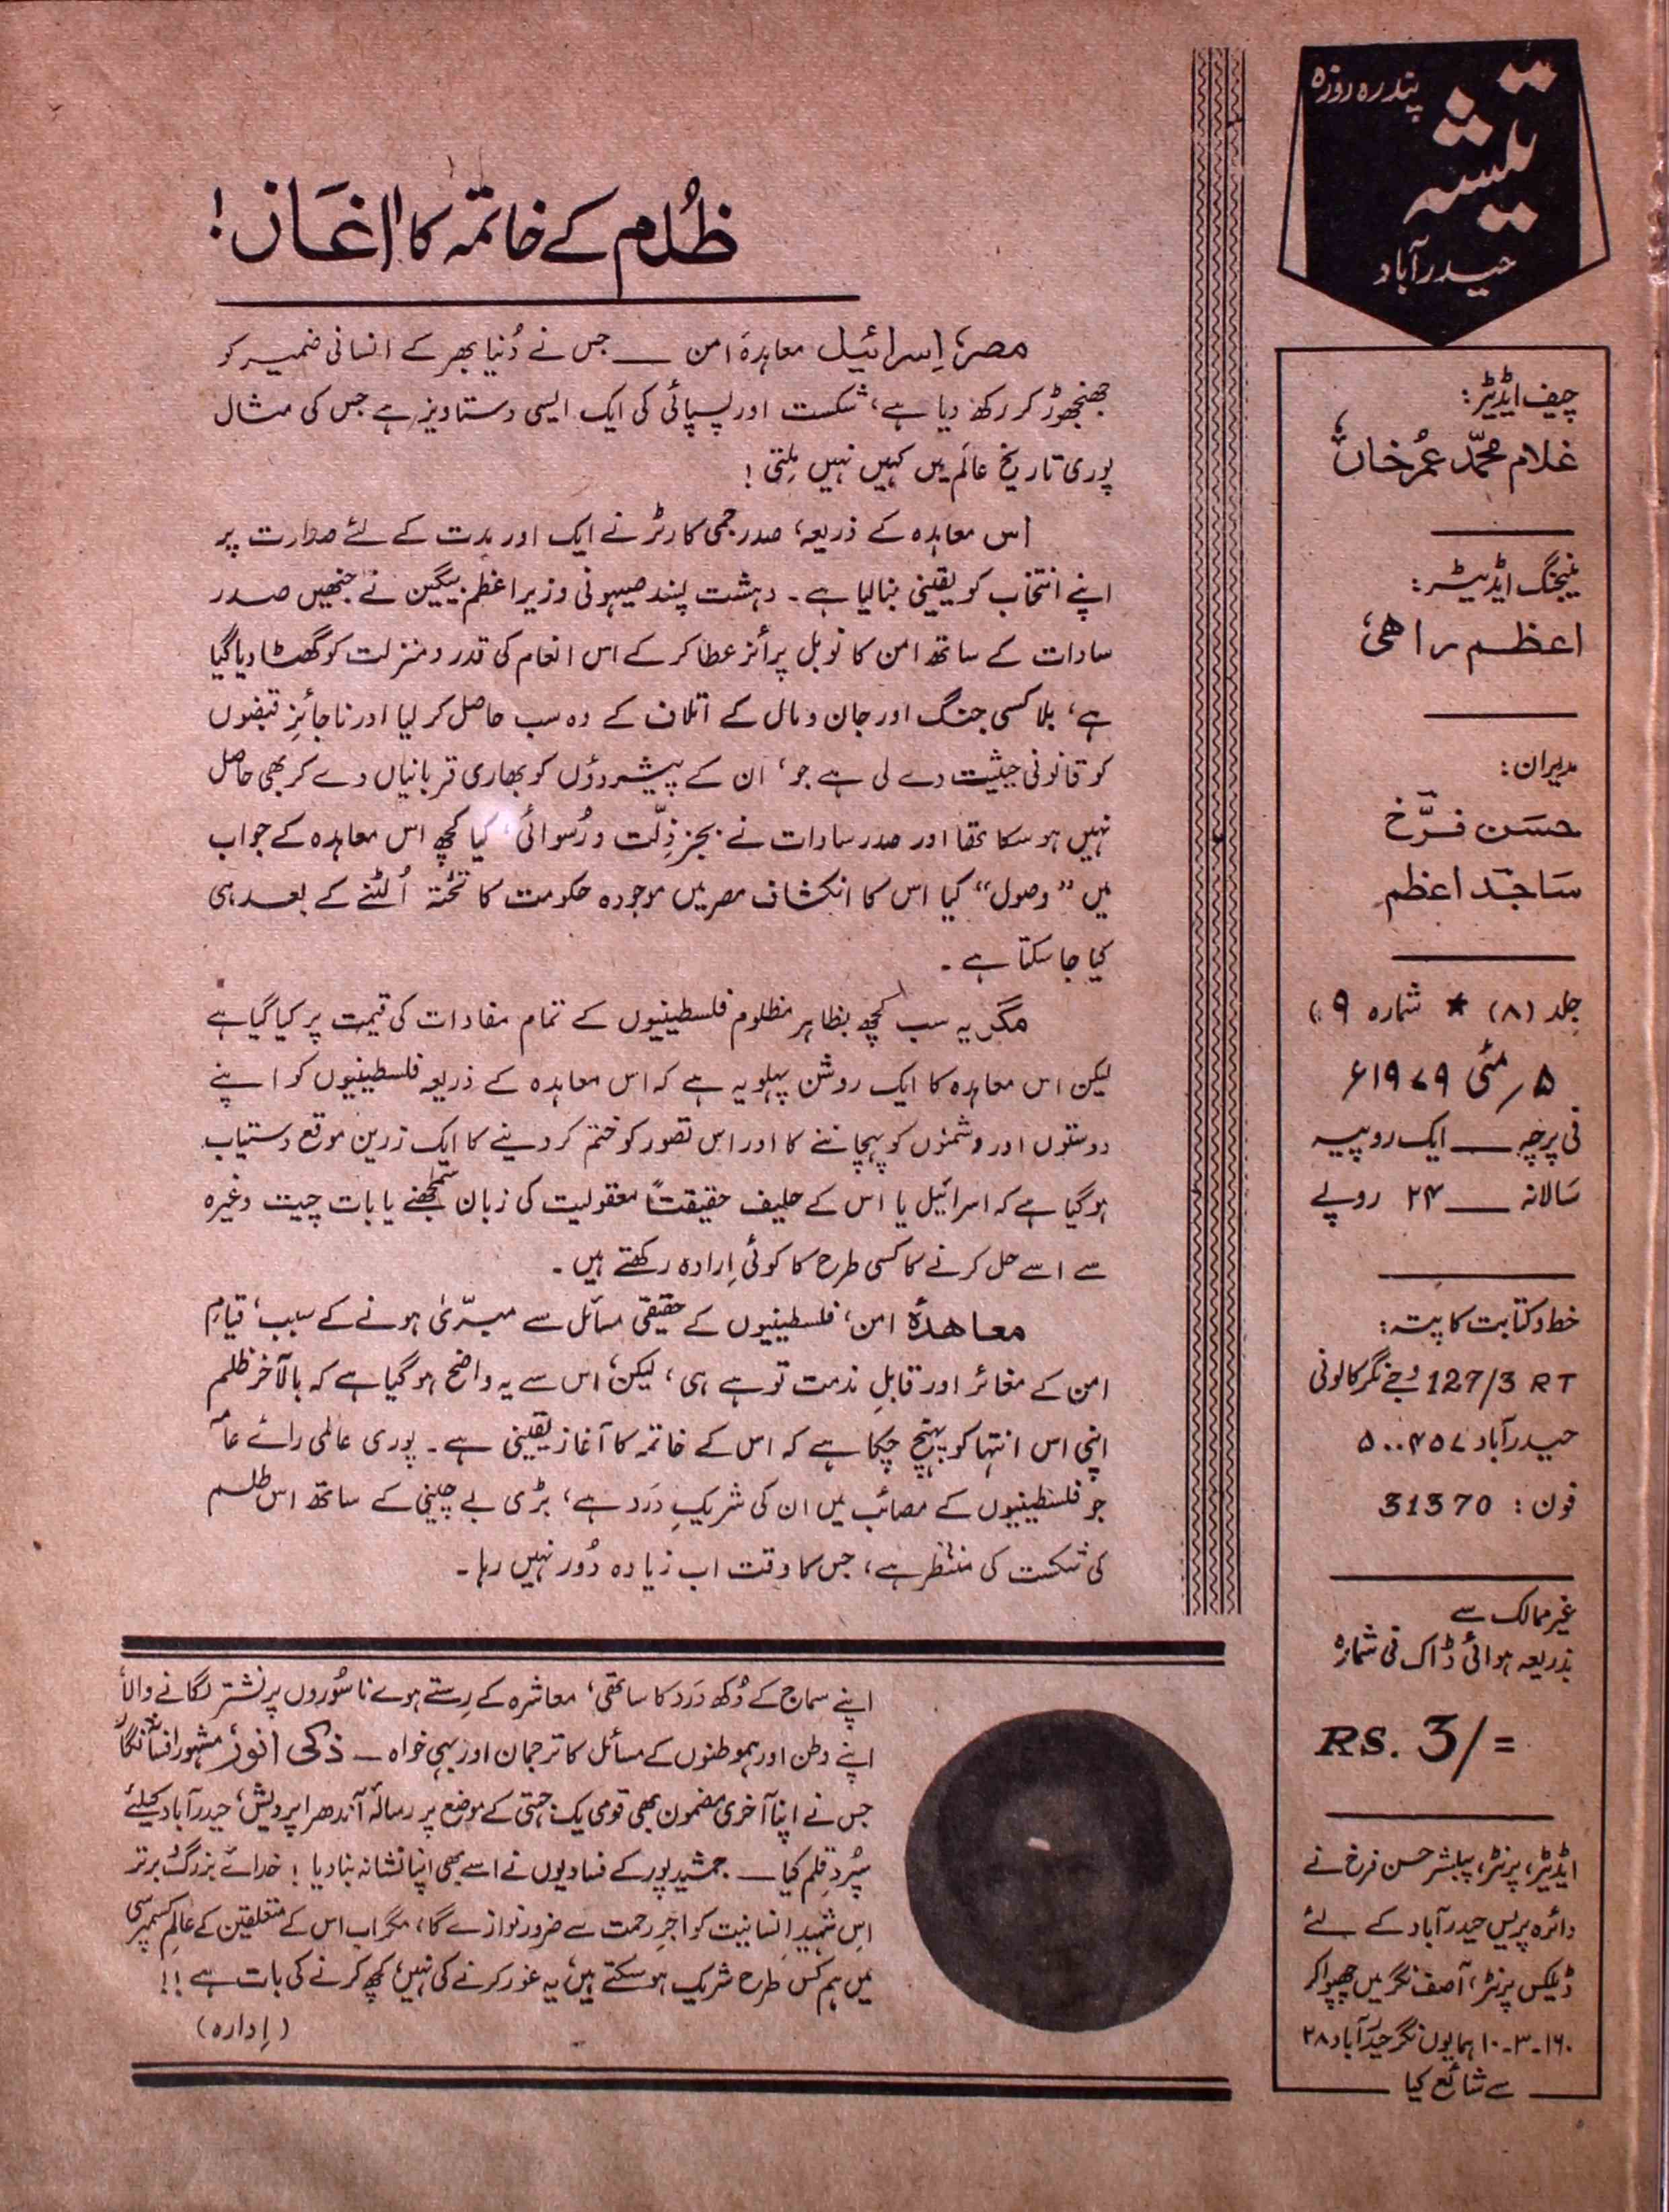 پندرہ روزہ
تیشہ
حیدرآباد
چیف ایڈیٹر:
غلام محمّد عمر خاں
منیجنگ ایڈیٹر:
اعظم راھی
مدیران:
حسَن فرّخ
سَاجد اعظم
جِلد (۸) ★ شمارہ (۹)
۵ر مئی ۱۹۷۹ء
فی پرچہ ــــ ایک روپیہ
سَالانہ ــــ ۲۴ روپے
خط و کتابت کا پتہ:
127/3 RT وجے نگر کالونی
حیدرآباد ۵۰۰۴۵۷
فون: 31370
غیر ممالک سے
بذریعہ ہوائی ڈاک فی شمارہ
RS. 3/=
ایڈیٹر، پرنٹر، پبلشر حسن فرخ نے
دائرہ پریس حیدرآباد کے لئے
ڈیلکس پرنٹرز، آصف نگر میں چھپوا کر
۱۶۰-۳-۱۰ ہمایوں نگر حیدرآباد ۲۸
سے شائع کیا
ظُلم کے خاتمہ کا آغاز!
مصر، اِسرائیل معاہدہَ امن ــــ جس نے دُنیا بھر کے انسانی ضمیر کو
جھنجھوڑ کر رکھ دیا ہے، شکست اور پسپائی کی ایک ایسی دستاویز ہے جس کی مثال
پوری تاریخِ عالَم میں کہیں نہیں مِلتی!
اُس معاہدہ کے ذریعہ، صدر جمی کارٹر نے ایک اور مدت کے لئے صدارت پر
اپنے انتخاب کو یقینی بنا لیا ہے۔ دہشت پسند صیہونی وزیر اعظم بیگین نے جنھیں صدر
سادات کے ساتھ امن کا نوبل پرائز عطا کر کے اس انعام کی قدر و منزلت کو گھٹا دیا گیا
ہے، بلا کسی جنگ اور جان و مال کے اتلاف کے وہ سب حاصل کر لیا اور ناجائز قبضوں
کو قانونی حیثیت دے لی ہے جو، ان کے پیشرووٗں کو بھاری قربانیاں دے کر بھی حاصل
نہیں ہو سکا تھا اور صدر سادات نے بجز ذِلّت و رُسوائی، کیا کچھ اس معاہدہ کے جواب
میں ”وصول“ کیا اس کا انکشاف مصر میں موجودہ حکومت کا تختہ اُلٹنے کے بعد ہی
کیا جا سکتا ہے۔
مگر یہ سب کچھ بظاہر مظلوم فلسطینیوں کے تمام مفادات کی قیمت پر کیا گیا ہے
لیکن اس معاہدہ کا ایک روشن پہلو یہ ہے کہ اس معاہدہ کے ذریعہ فلسطینیوں کو اپنے
دوستوں اور دشمنوں کو پہچاننے کا اور اس تصور کو ختم کر دینے کا ایک زرین موقع دستیاب
ہو گیا ہے کہ اسرائیل یا اس کے حلیف حقیقتاً معقولیت کی زبان سمجھنے یا بات چیت وغیرہ
سے اسے حل کرنے کا کسی طرح کا کوئی اِرادہ رکھتے ہیں۔
معاھدہٗ امن، فلسطینیوں کے حقیقی مسائل سے مبرّیٰ ہونے کے سبب، قیامِ
امن کے مغائر اور قابلِ مذمت تو ہے ہی، لیکن، اس سے یہ واضح ہو گیا ہے کہ بالآخر ظلم
اپنی اس انتہا کو پہنچ چکا ہے کہ اس کے خاتمہ کا آغاز یقینی ہے۔ پوری عالمی رائے عامہ
جو فلسطینیوں کے مصائب میں ان کی شریکِ دَرد ہے، بڑی بے چینی کے ساتھ اس ظلم
کی شکست کی منتظر ہے، جس کا وقت اب زیادہ دُور نہیں رہا۔
اپنے سماج کے دُکھ دَرد کا ساتھی، معاشرہ کے رِستے ہوے ناسُوروں پر نشتر لگانے والا
اپنے وطن اور ہموطنوں کے مسائل کا ترجمان اور بہی خواہ ــ ذکی انور، مشہور افسانہ نگار
جس نے اپنا آخری مضمون بھی قومی یک جہتی کے موضوع پر رسالہٗ آندھراپردیش، حیدرآباد کیلئے
سپُردِ قلم کیا ــ جمشیدپور کے فسادیوں نے اسے بھی اپنا نشانہ بنا دیا! خدائے بزرگ و برتر
اس شہیدِ اِنسانیت کو اجرِ رحمت سے ضرور نوازے گا، مگر اب اس کے متعلقین کے عالمِ کسمپرسی
میں ہم کس طرح شریک ہو سکتے ہیں، یہ غور کرنے کی نہیں، کچھ کرنے کی بات ہے!!
(اِدارہ)